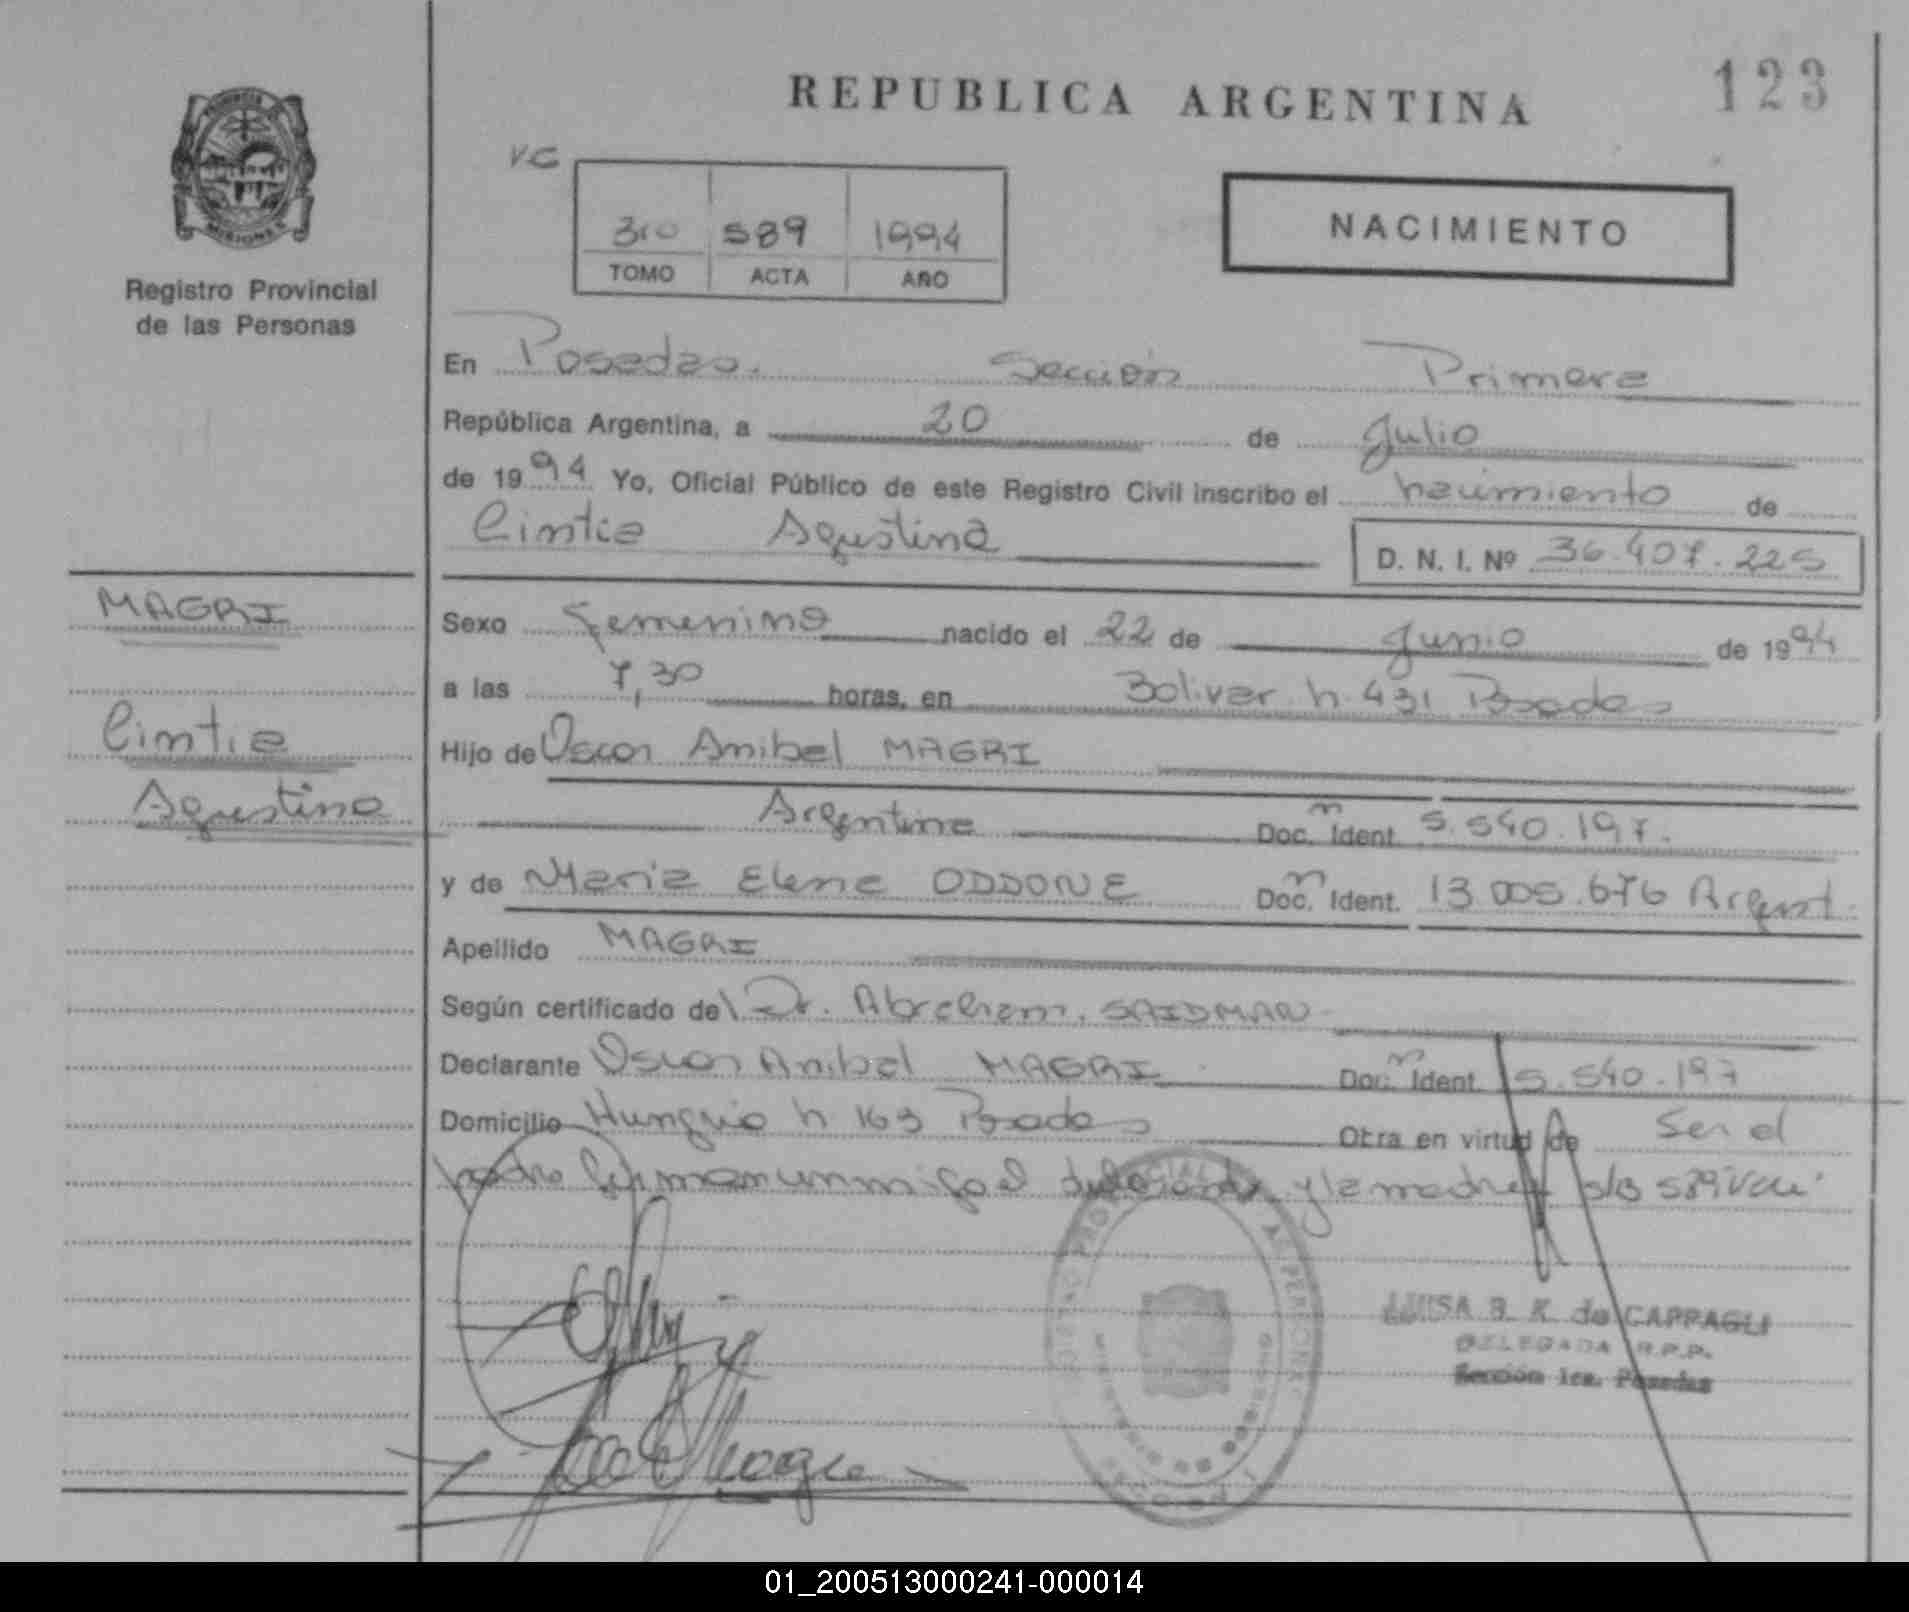 REPUBLICA ARGENTINA
123
PROVINCIA
MISIONES
Registro Provincial
de las Personas
VC
3ro 589 1994
TOMO ACTA AÑO
NACIMIENTO
En Posadas. Sección Primera
República Argentina, a 20 de Julio
de 1994 Yo, Oficial Público de este Registro Civil inscribo el nacimiento de
Cintia Agustina D. N. I. Nº 36.407.225
MAGRI
Cintia
Agustina
Sexo Femenino nacido el 22 de Junio de 1994
a las 7,30 horas, en Bolivar n. 431 Posadas
Hijo de Oscar Anibal MAGRI
Argentina Doc. Ident. 5.540.197.
y de Maria Elena ODDONE Doc. Ident. 13.005.676 Argent.
Apellido MAGRI
Según certificado del Dr. Abraham. SAIDMAN
Declarante Oscar Anibal MAGRI Doc. Ident. 5.540.197
Domicilio Hungria n. 163 Posadas Obra en virtud de Ser el
padre firman conmigo el declarante y la madre
LUISA B. K. de CAPPAGLI
DELEGADA R.P.P.
Sección 1ra. Posadas
01_200513000241-000014